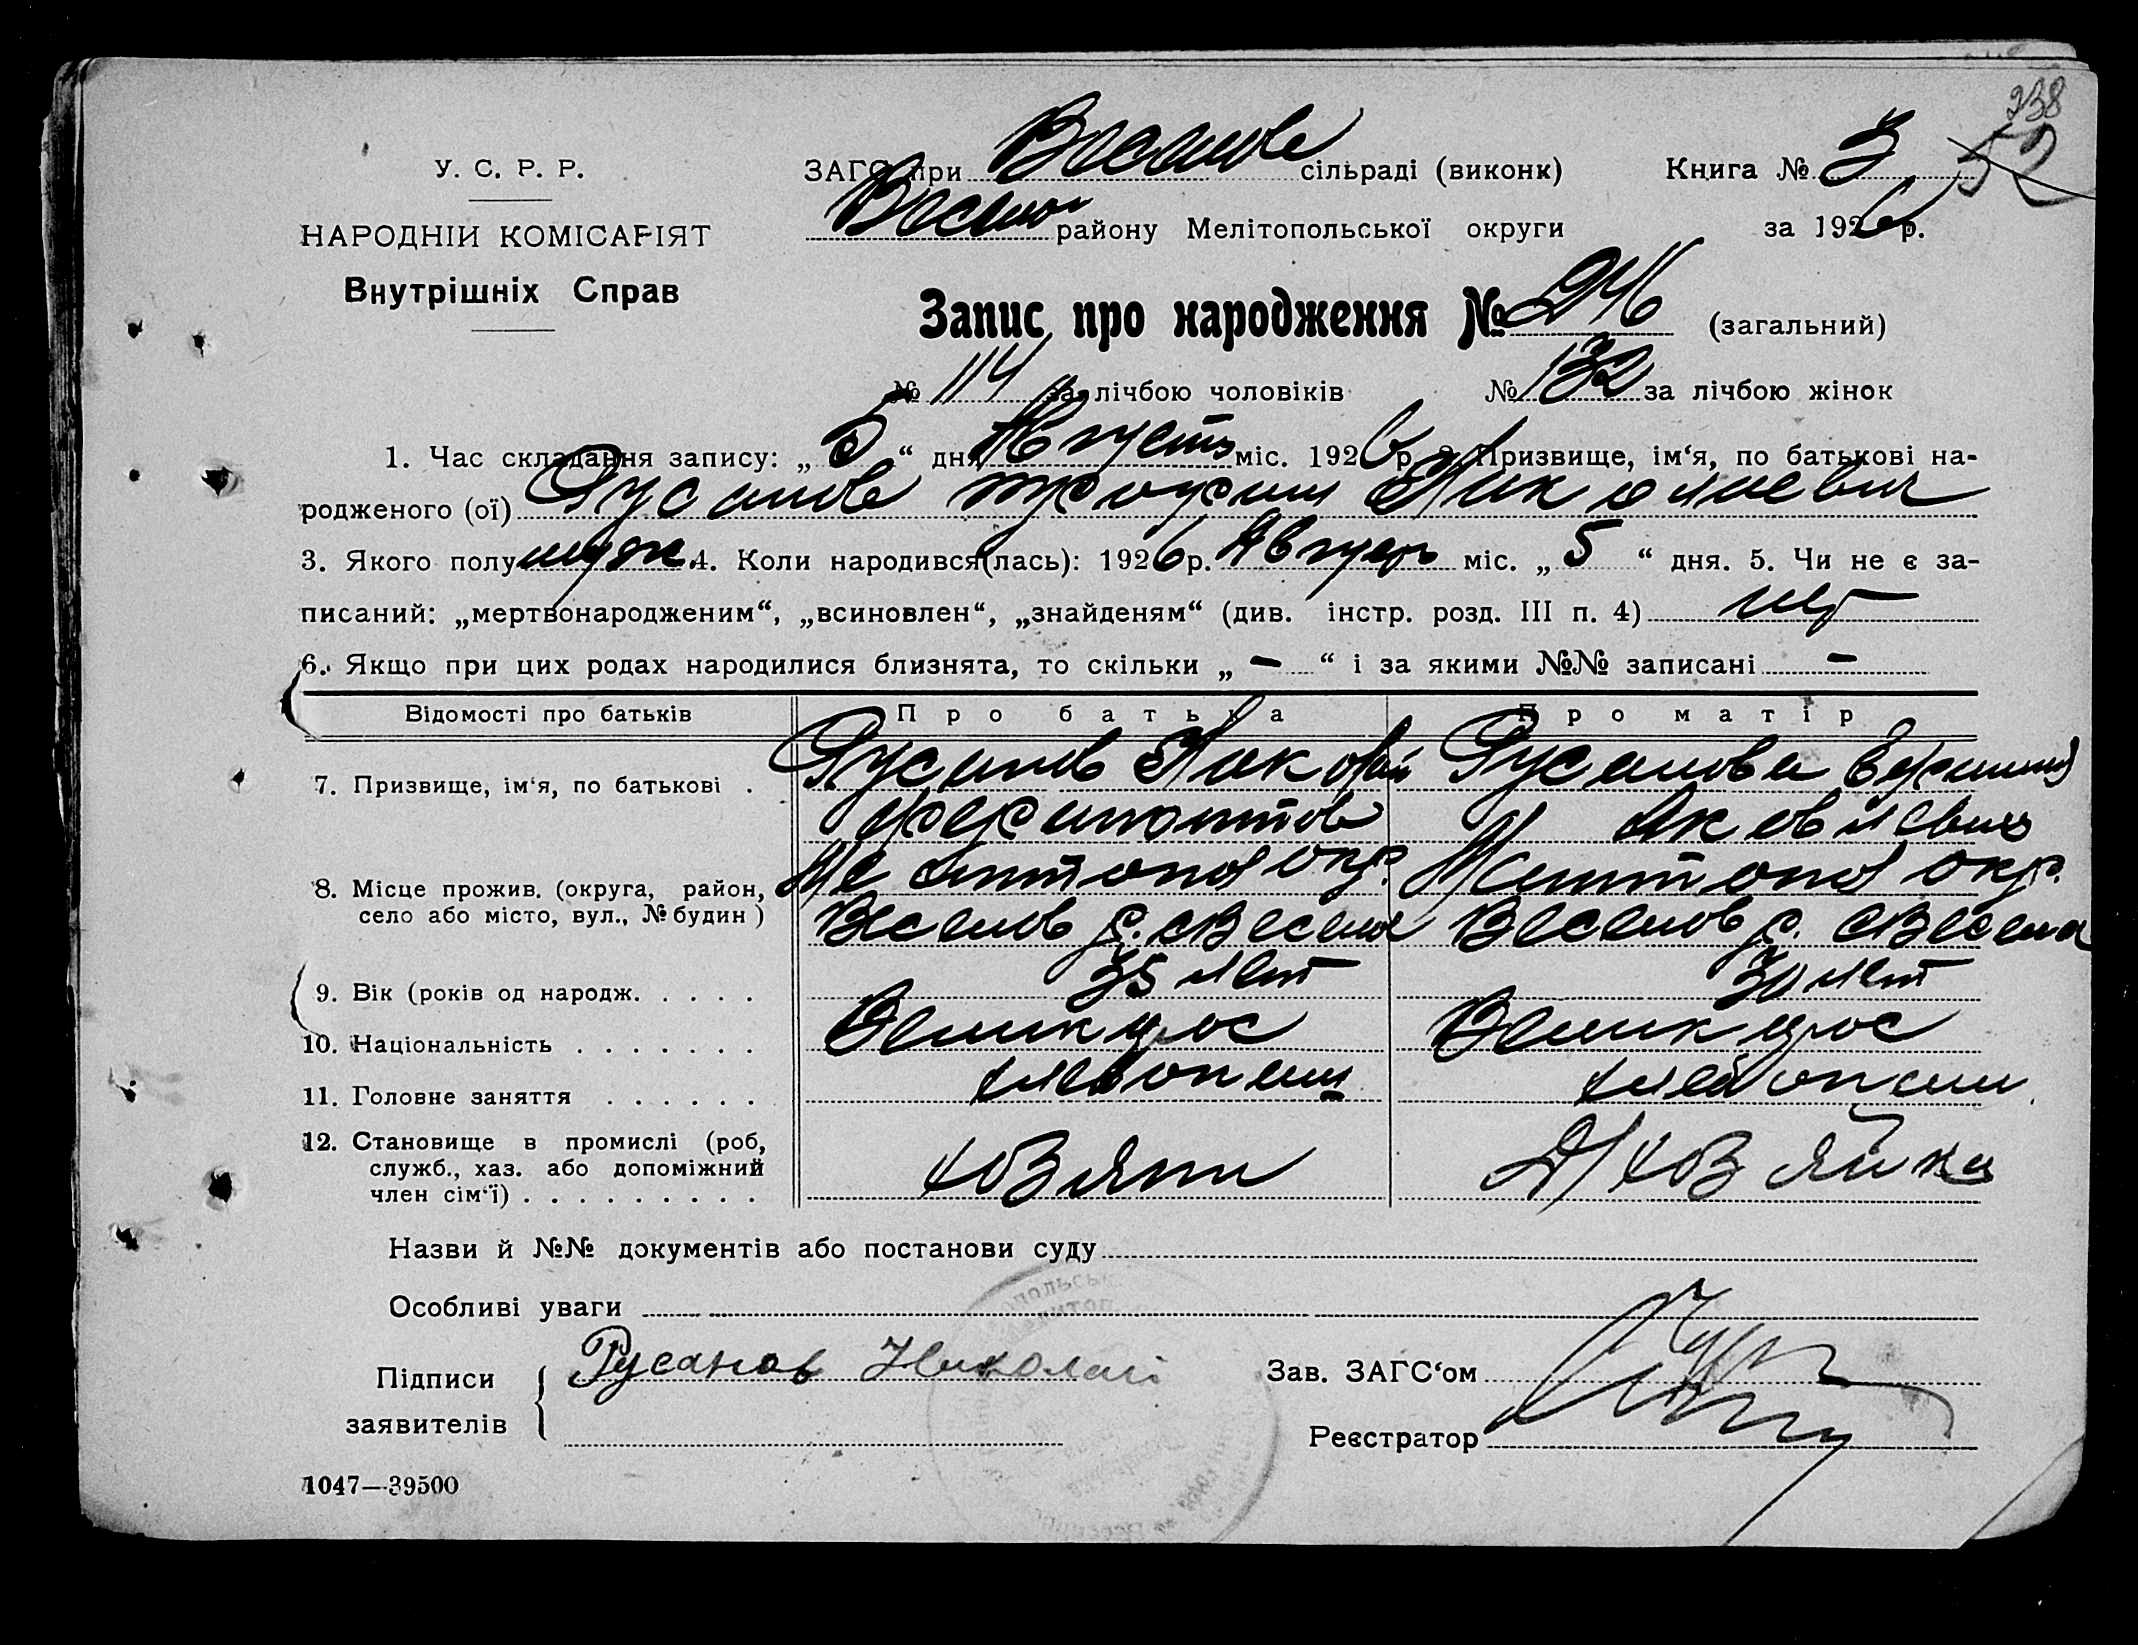 238
52
У. С. Р. Р.
НАРОДНІЙ КОМІСАРІЯТ
Внутрішніх Справ
ЗАГС при Веселов сільраді (виконк)
Весел району Мелітопольської округи
Книга № 3
за 1926 р.
Запис про народження № 246 (загальний)
№ 114 за лічбою чоловіків № 132 за лічбою жінок
1. Час складання запису: „ 5 “ дня Августа міс. 1926 р. 2. Призвище, ім‘я, по батькові на-
родженого (ої) Русанов Николаевич
3. Якого полу муж. 4. Коли народився(лась): 1926 р. Август міс. „ 5 “ дня. 5. Чи не є за-
писаний: „мертвонародженим“, „всиновлен“, „знайденям“ (див. інстр. розд. III п. 4) нет
6. Якщо при цих родах народилися близнята, то скільки „ — “ і за якими №№ записані —
Відомості про батьків Про батька Про матір
7. Призвище, ім‘я, по батькові . Русанов Николай Русанова
Яковлевна
8. Місце прожив. (округа, район, Мелитопол окр. Мелитопол окр.
село або місто, вул., № будин) Веселов р. с Весела Веселов р. с Весела
9. Вік (років од народж. . . . . 35 лет 30 лет
10. Національність . . . . . . . Великорос Великорос
11. Головне заняття . . . . . . хлебопаш хлебопаш
12. Становище в промислі (роб,
служб., хаз. або допоміжний хозяин Д/хозяйка
член сім‘ї) . . . . . . . . .
Назви й №№ документів або постанови суду
Особливі уваги
Підписи Русанов Николай
заявителів
Зав. ЗАГС‘ом
Реєстратор
1047—39500